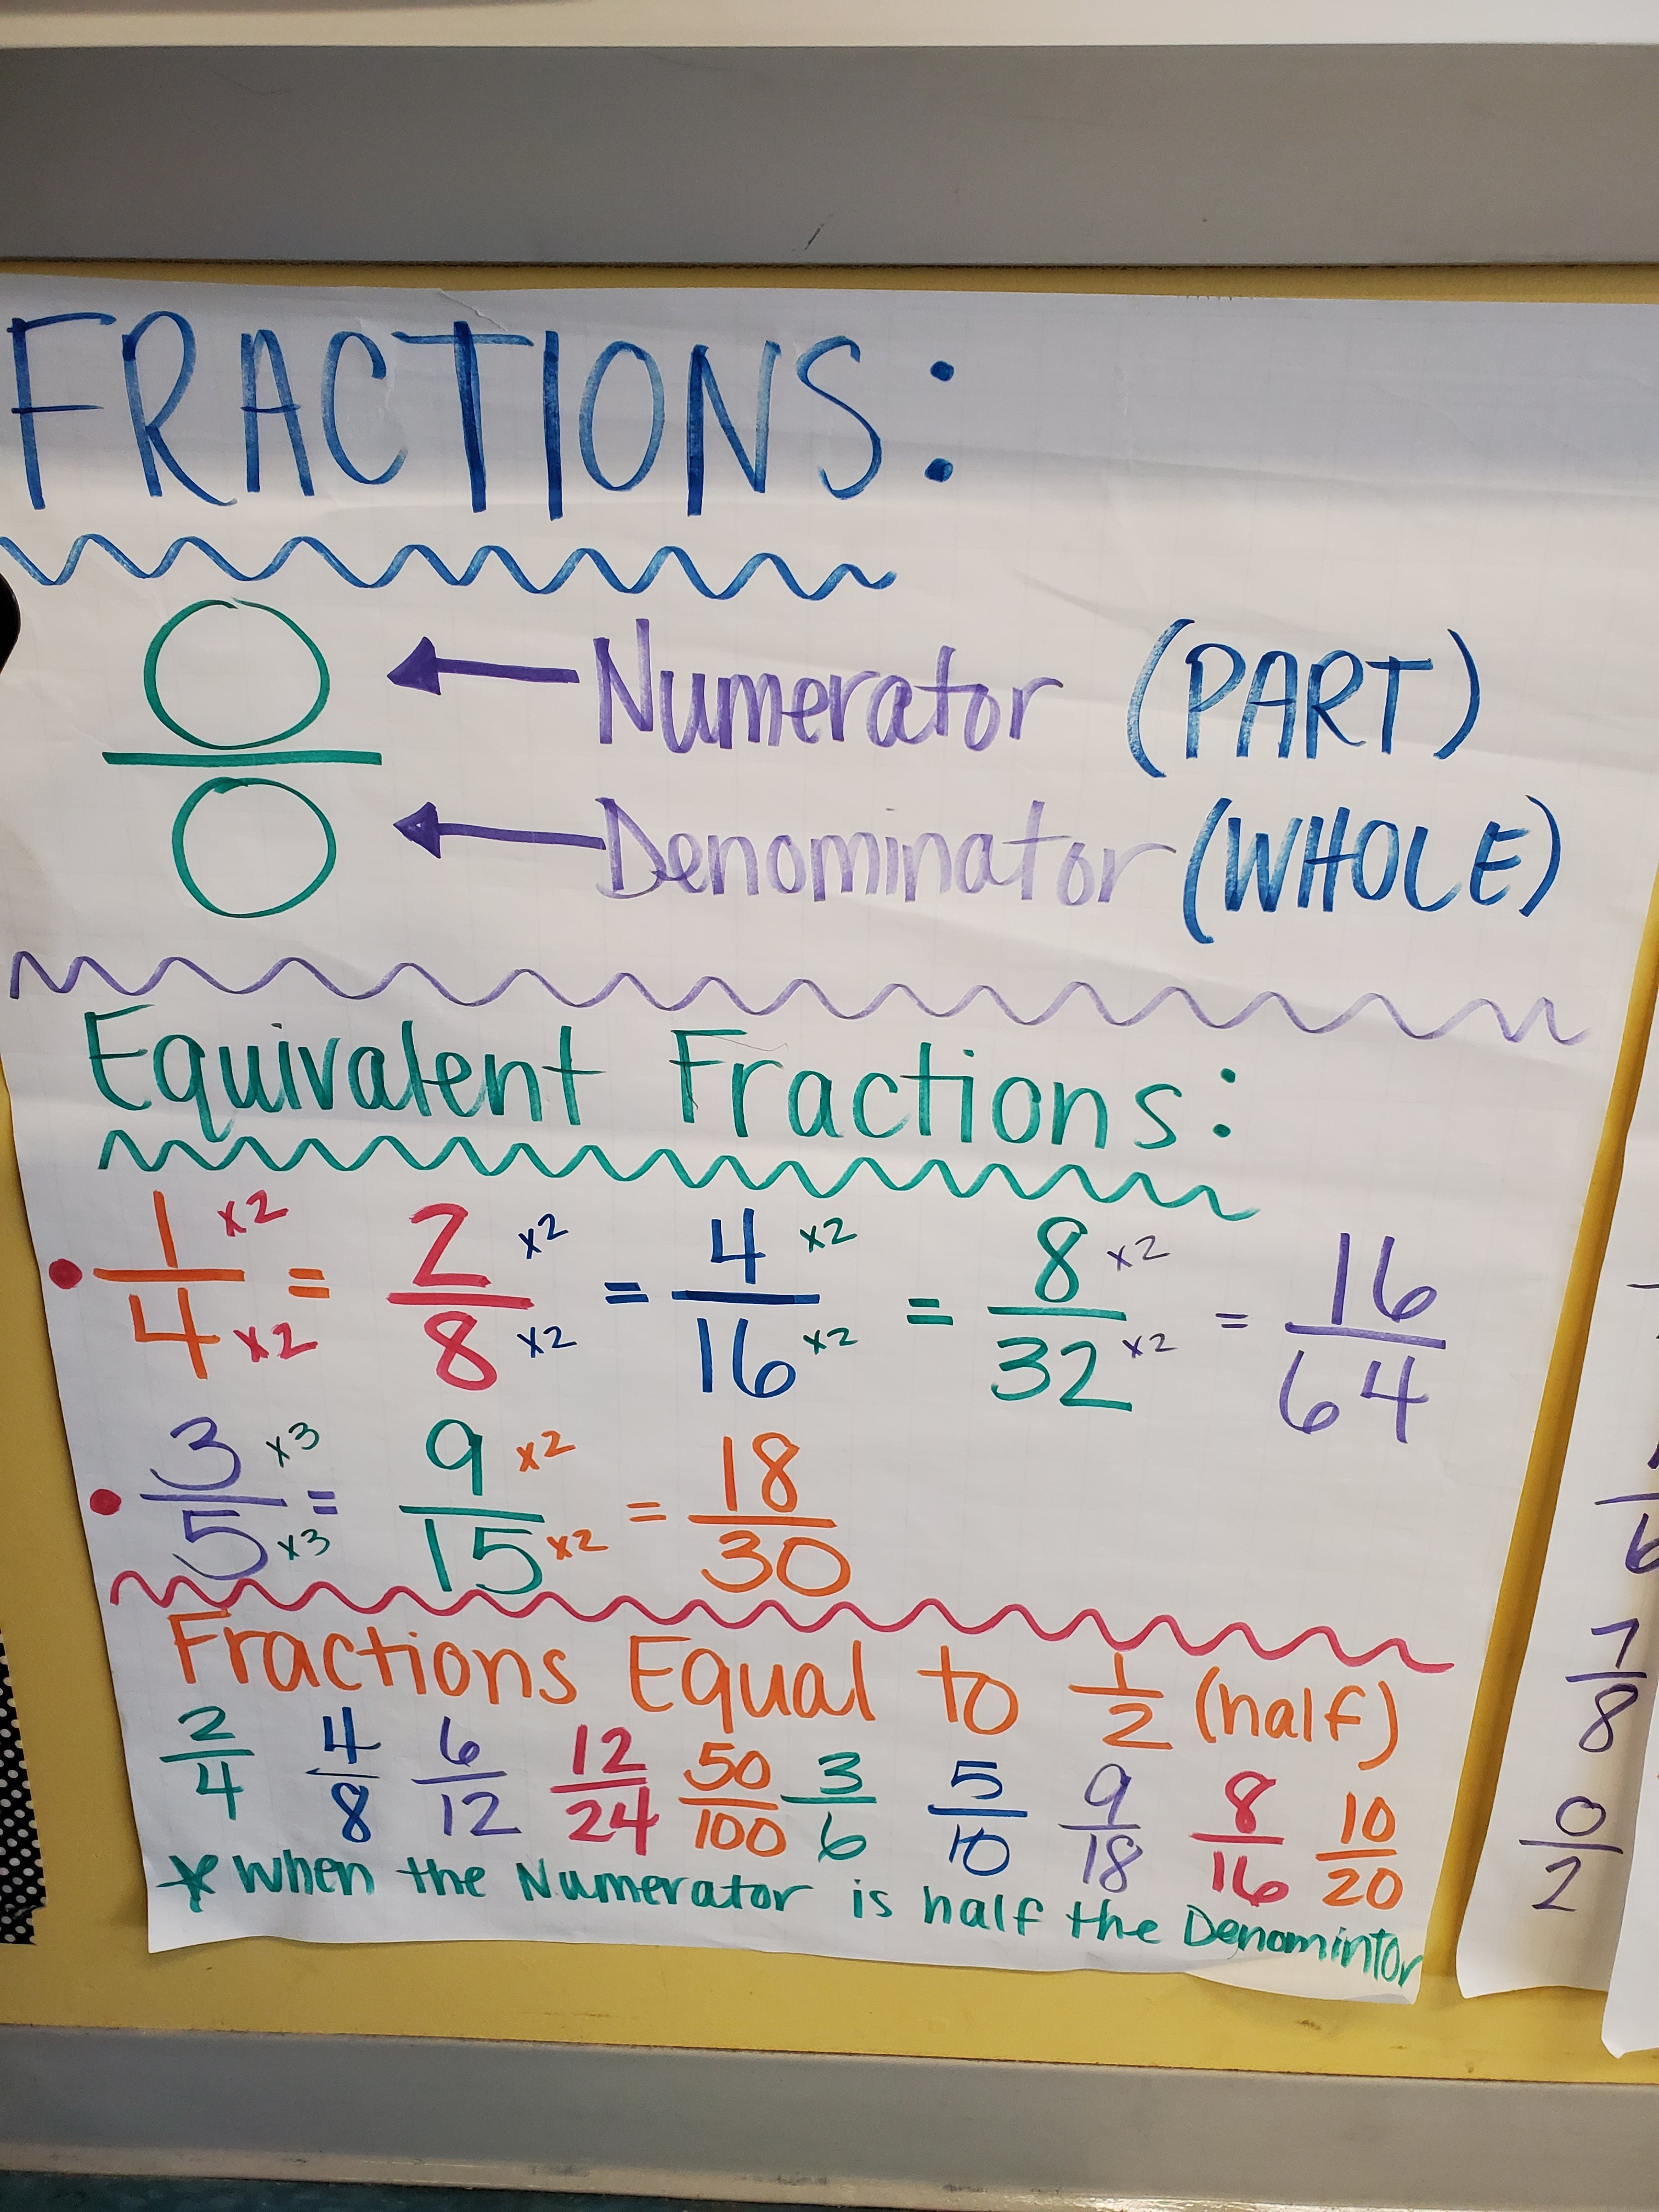 FRACTIONS:
Numerator (PART)
Denominator (WHOLE)
Equivalent Fractions:
1/4 x2 x2 = 2/8 x2 x2 = 4/16 x2 x2 = 8/32 x2 x2 = 16/64
3/5 x3 x3 = 9/15 x2 x2 = 18/30
Fractions Equal to 1/2 (half)
2/4 4/8 6/12 12/24 50/100 3/6 5/10 9/18 8/16 10/20
* When the Numerator is half the Denomintor
7/8
0/2